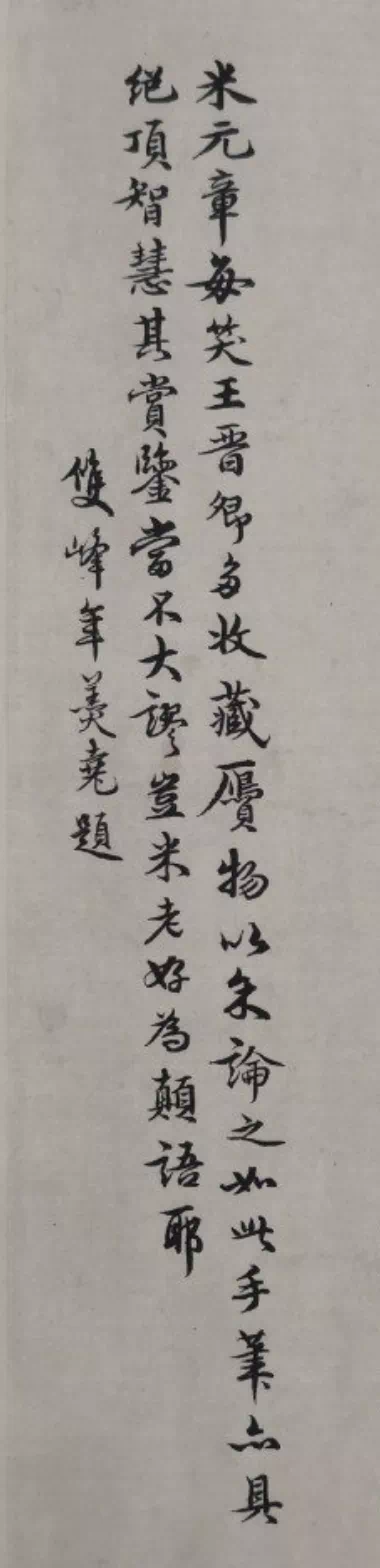 米元章每笑王晉卿多收藏贋物以余論之如此手筆亦具
絕頂智慧其賞鑒當不大謬豈米老好為顛語耶
雙峰年羹堯題